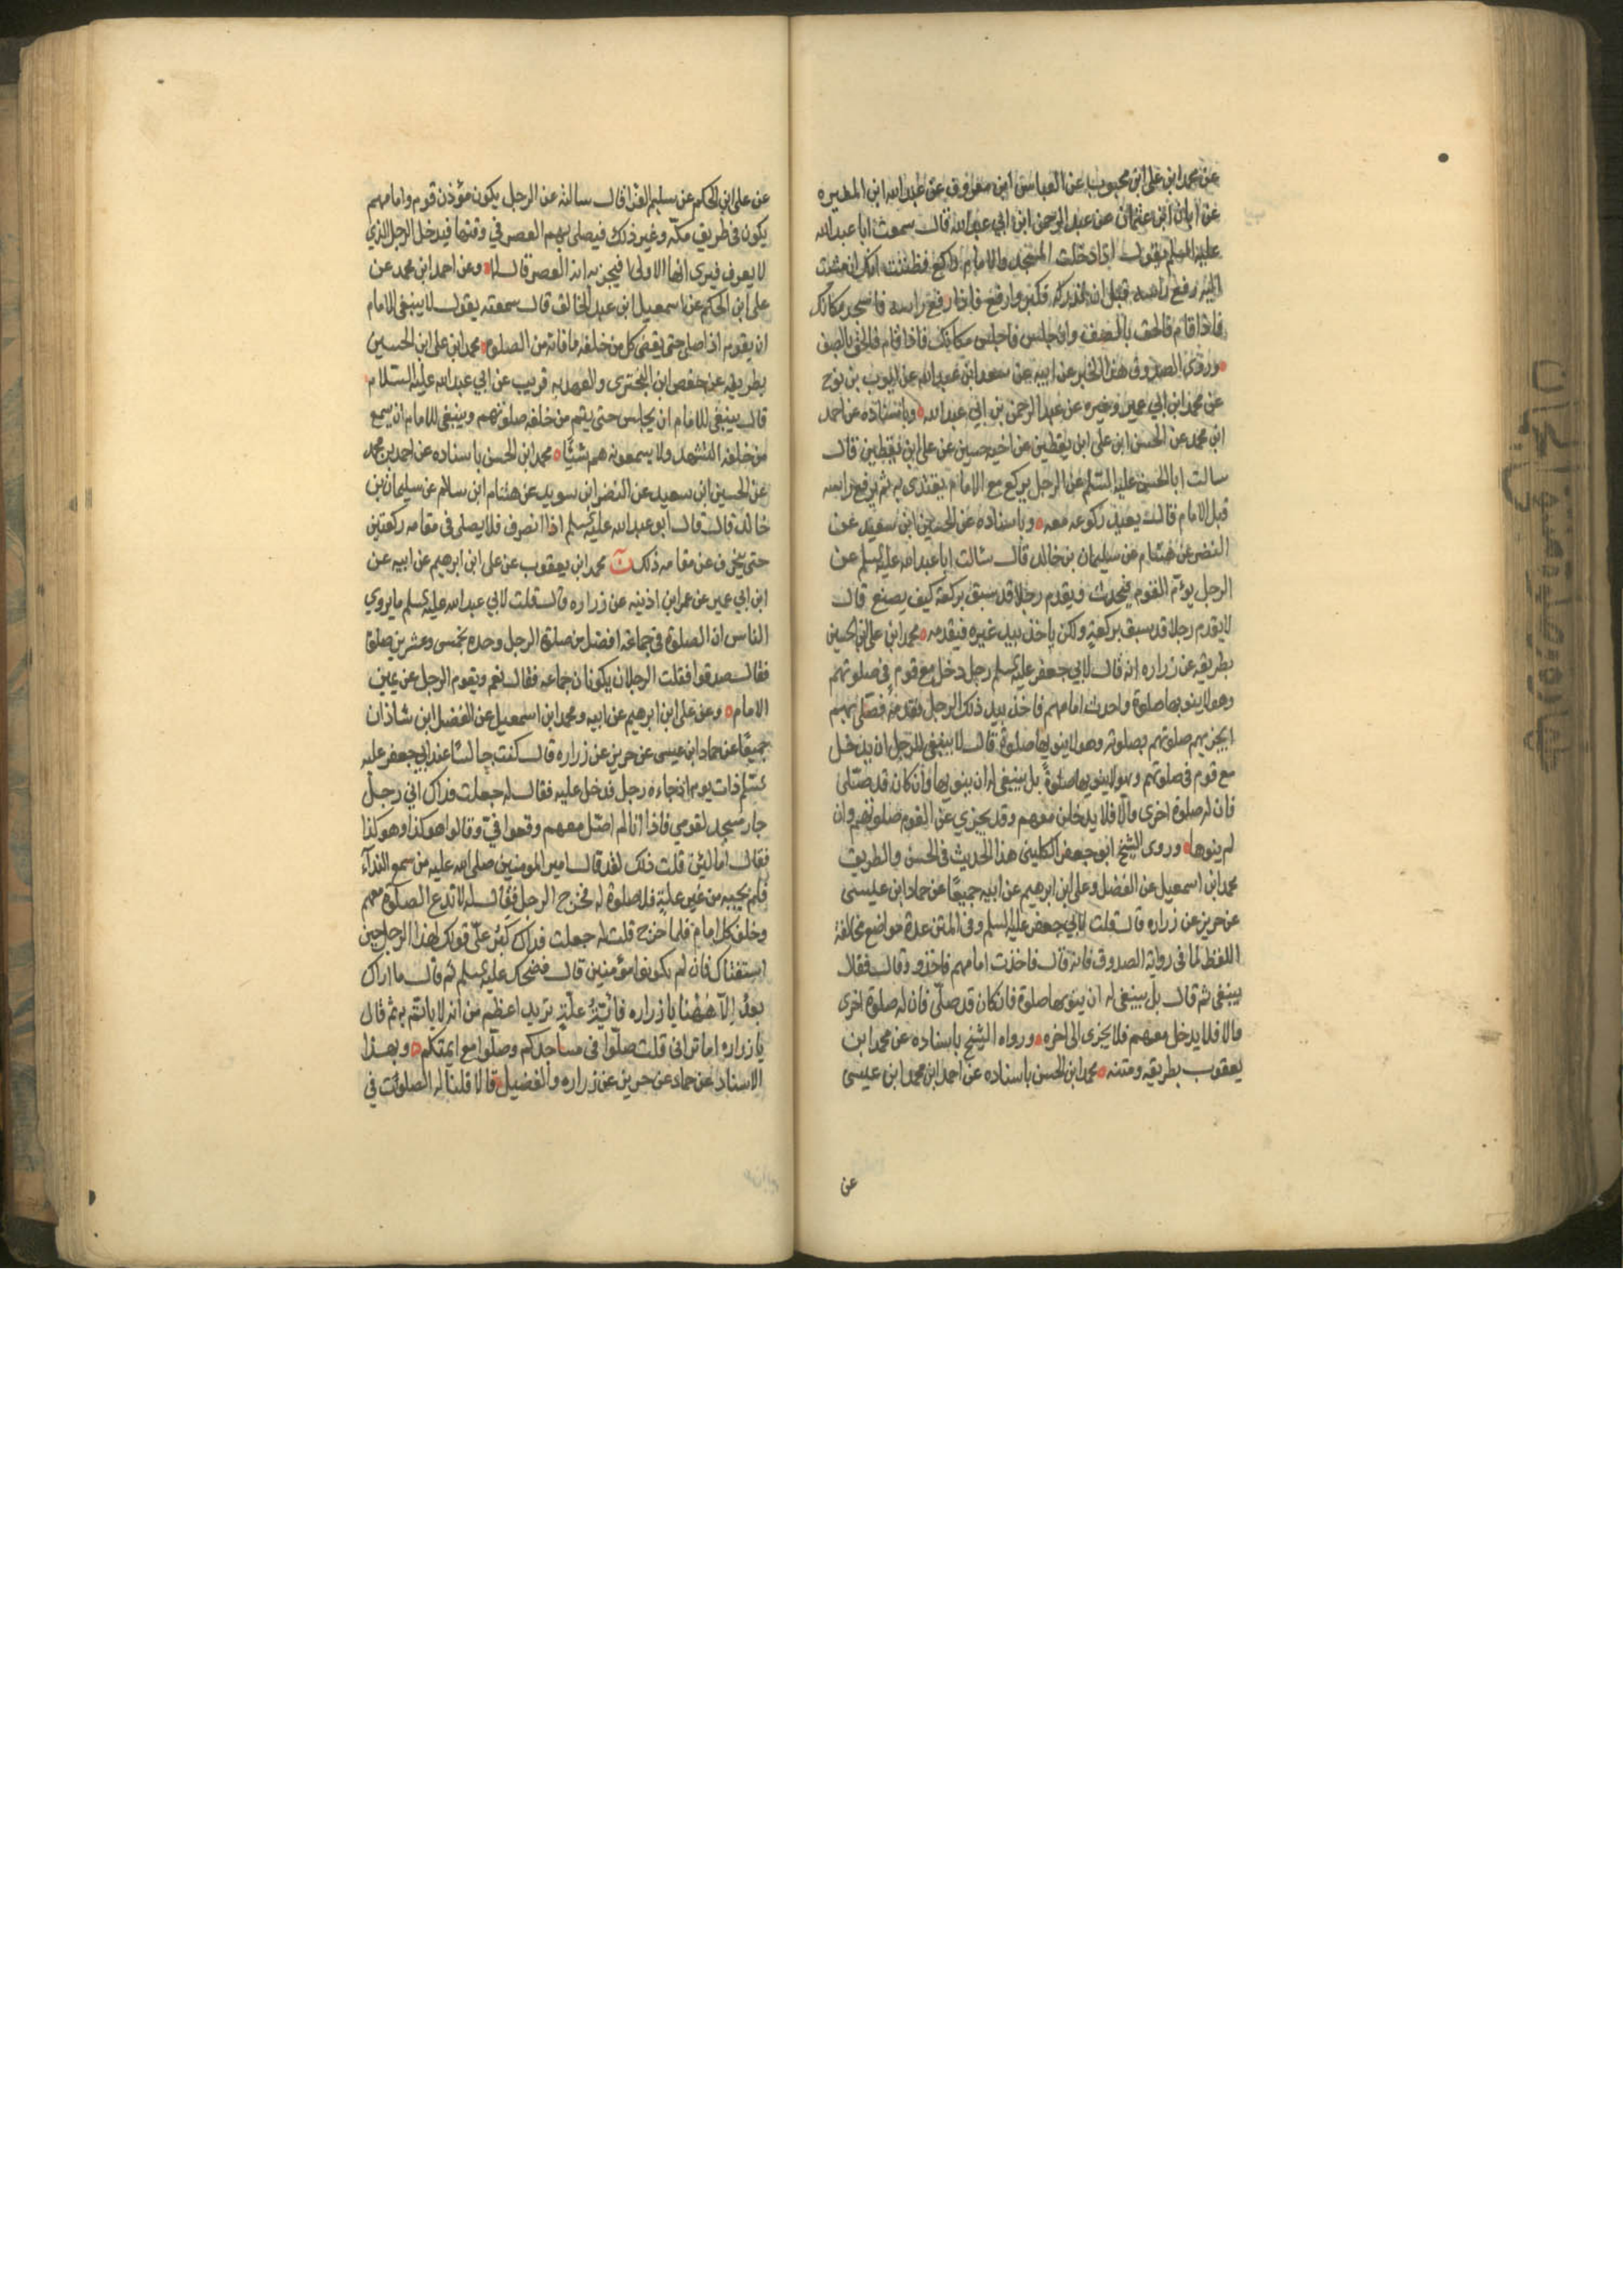 عن محمد ابن علي ابن محبوب عن العباس ابن معروف عن عبد الله ابن المغيره
عن ابان ابن عثمان عن عبد الرحمن ابن ابي عبد الله قال سمعت ابا عبد الله
عليه السلم يقول اذا دخلت المسجد والامام راكع فظننت انك ان مشيت
اليه رفع راسه قبل ان تدركه فكبر واركع فاذا رفع راسه فاسجد مكانك
فاذا قام فالحق بالصف وان جلس فاجلس مكانك فاذا قام فالحق بالصف
وروى الصدوق هذا الخبر عن ابيه عن سعد ابن عبد الله عن ايوب بن نوح
عن محمد ابن ابي عمير وغيره عن عبد الرحمن بن ابي عبد الله وباسناده عن احمد
ابن محمد عن الحسن ابن علي ابن يقطين عن اخيه حسين عن علي ابن يقطين قال
سالت ابا الحسن عليه السلم عن الرجل يركع مع الامام يقتدى به ثم يرفع راسه
قبل الامام قال يعيد ركوعه معه وباسناده عن الحسين ابن سعيد عن
النضر عن هشام عن سليمان بن خالد قال سالت ابا عبد الله عليه السلم عن
الرجل يؤم القوم فيحدث ويقدم رجلا قد سبق بركعة كيف يصنع قال
لا يقدم رجلا قد سبق بركعة ولكن ياخذ بيد غيره فيقدمه محمد ابن علي ابن الحسين
بطريقه عن زراره انه قال لابي جعفر عليه السلم رجل دخل مع قوم في صلوتهم
وهو لا ينويها صلوة واحدث امامهم فاخذ بيد ذلك الرجل فقدمه فصلى بهم
ايجزيهم صلوتهم بصلوته وهو لا ينويها صلوة قال لا ينبغي للرجل ان يدخل
مع قوم في صلوتهم وهو لا ينويها صلوة بل ينبغي له ان ينويها وان كان قد صلى
فان له صلوة اخرى والا فلا يدخلن معهم وقد يجزي عن القوم صلوتهم وان
لم ينوها وروى الشيخ ابو جعفر الكليني هذا الحديث في الحسن والطريق
محمد ابن اسمعيل عن الفضل وعلي ابن ابرهيم عن ابيه جميعًا عن حماد ابن عيسى
عن حريز عن زراره قال قلت لابي جعفر عليه السلم وفي المتن عدة مواضع مخالفة
اللفظ لما في رواية الصدوق فانه قال فاخذت امامهم فاخذ و وقال فقال
ينبغي ثم قال بل ينبغي له ان ينويها صلوة فان كان قد صلى فان له صلوة اخرى
والا فلا يدخل معهم فلا يجزى الى اخره ورواه الشيخ باسناده عن محمد ابن
يعقوب بطريقه ومتنه محمد ابن الحسن باسناده عن احمد ابن محمد ابن عيسى
عن
عن علي ابن الحكم عن سليم الفرا قال سالته عن الرجل يكون مؤذن قوم وامامهم
يكون في طريق مكة وغير ذلك فيصلى بهم العصر في وقتها فيدخل الرجل الذي
لا يعرف فيرى انها الاولى افيجزيه انه العصر قال لا وعن احمد ابن محمد عن
علي ابن الحكم عن اسمعيل ابن عبد الخالق قال سمعته يقول لا ينبغي للامام
ان يقوم اذا صلى حتى يقضى كل من خلفه ما فاته من الصلوة محمد ابن علي ابن الحسين
بطريقه عن حفص ابن البختري والعهد به قريب عن ابي عبد الله عليه السلام
قال ينبغي للامام ان يجلس حتى يتم من خلفه صلوتهم وينبغي للامام ان يسمع
من خلفه التشهد ولا يسمعونه هم شيًا محمد ابن الحسن باسناده عن احمد بن محمد
عن الحسين ابن سعيد عن النضر ابن سويد عن هشام ابن سلام عن سليمان بن
خالد قال قال ابو عبد الله عليه السلم اذا انصرف فلا يصلى في مقامه ركعتين
حتى ينحرف عن مقامه ذلك ن محمد ابن يعقوب عن علي ابن ابرهيم عن ابيه عن
ابن ابي عمير عن عمر ابن اذينه عن زراره قال قلت لابي عبد الله عليه السلم ما يروي
الناس ان الصلوة في جماعة افضل من صلوة الرجل وحده بخمس وعشرين صلوة
فقال صدقوا فقلت الرجلان يكونان جماعه فقال نعم ويقوم الرجل عن يمين
الامام وعن علي ابن ابرهيم عن ابيه ومحمد ابن اسمعيل عن الفضل ابن شاذان
جميعًا عن حماد ابن عيسى عن حريز عن زراره قال كنت جالسًا عند ابي جعفر عليه
السلم ذات يوم اذ جاءه رجل فدخل عليه فقال له جعلت فداك اني رجل
جار مسجد لقومي فاذا انا لم اصل معهم وقعوا فيّ وقالوا هو كذا وهو كذا
فقال اما لئن قلت ذلك لقد قال امير المومنين صلى الله عليه من سمع النداء
فلم يجبه من غير علة فلا صلوة له فخرج الرجل فقال له لا تدع الصلوة معهم
وخلف كل امام فلما خرج قلت له جعلت فداك كبر علي قولك لهذا الرجل حين
استفتاك فان لم يكونوا مؤمنين قال فضحك عليه السلم ثم قال ما اراك
بعد الا ههنا يا زراره فاية علة تريد اعظم من انه لا ياتم به ثم قال
يا زراره اما تراني قلت صلوا في مساجدكم وصلوا مع ايمتكم وبهذا
الاسناد عن حماد عن حريز عن زراره والفضيل قالا قلنا له الصلوت في